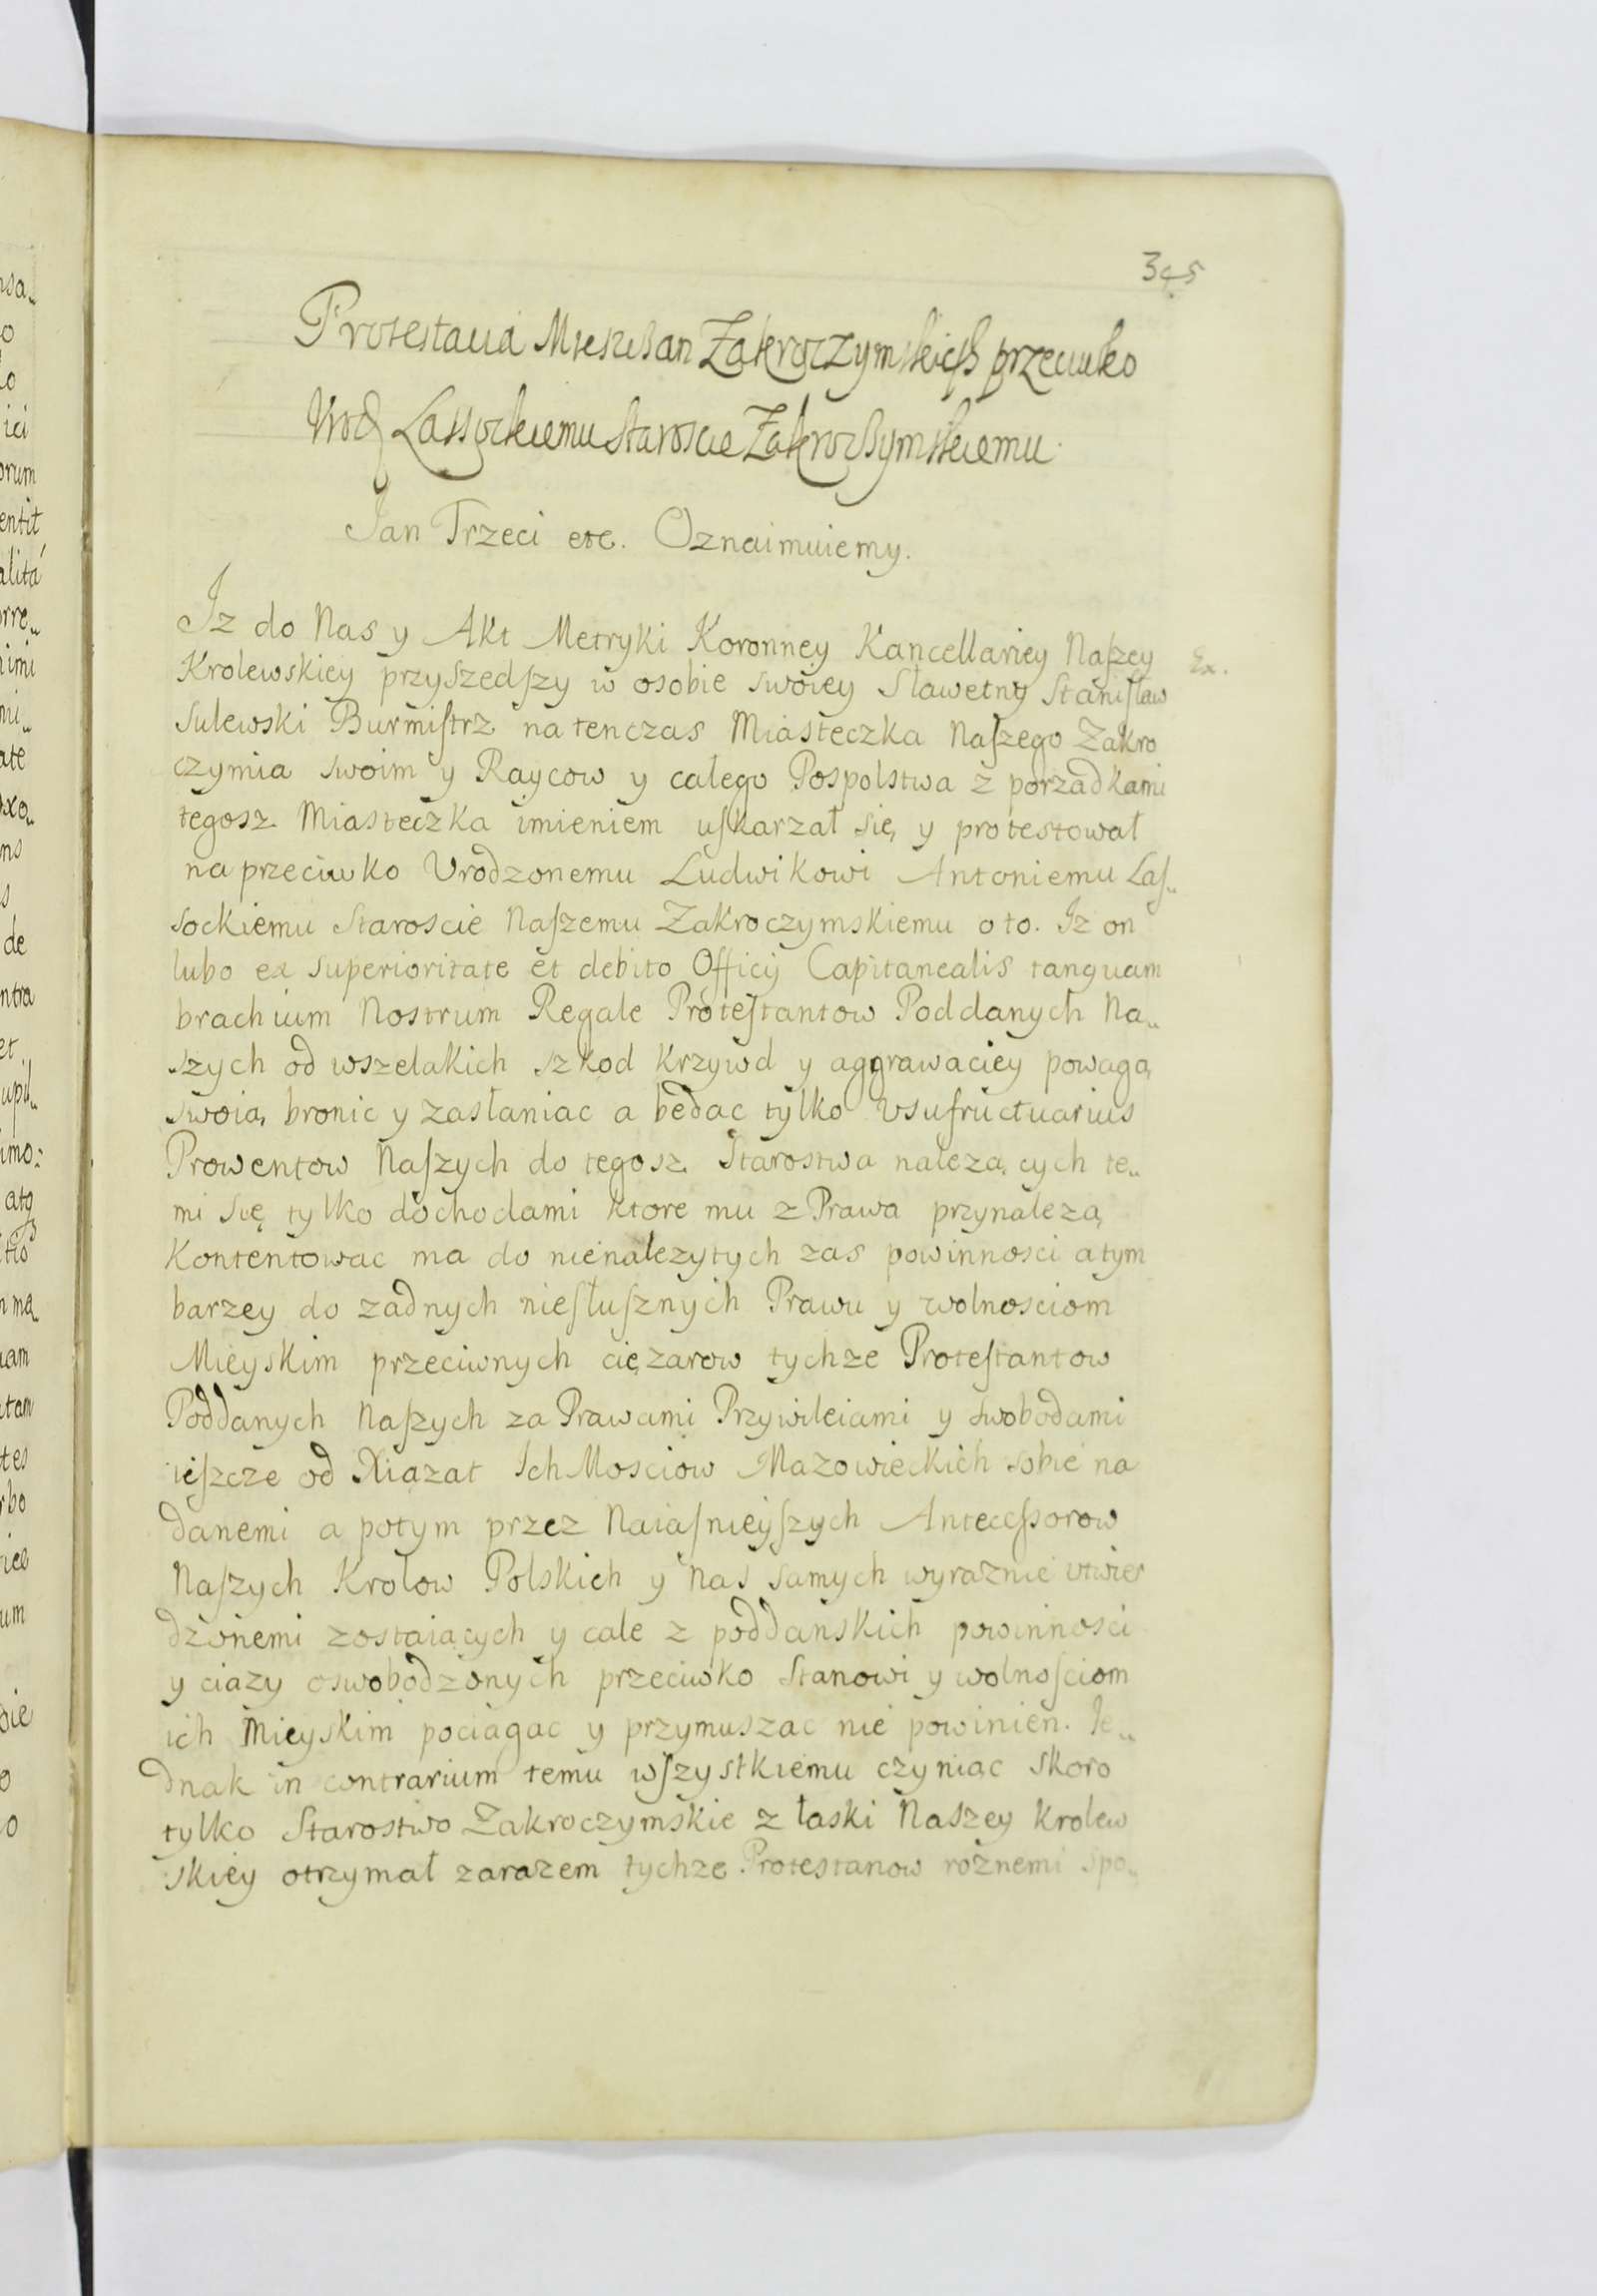 345
Protestacia Mieszczan Zakroczymskich przeciwko
Urod Lassockiemu Staroscie Zakroczymskiemu.
Jan Trzeci etc. Oznaimuiemy.
Iz do Nas y Akt Metryki Koronney Kancellariey Naszey
Krolewskiey przyszedszy w osobie swoiey Sławetny Stanisław
Sulewski Burmistrz na tenczas Miasteczka Naszego Zakro
czymia swoim y Raycow y całego Pospolstwa z porządkami
tegosz Miasteczka imieniem uskarzał się, y protestował
na przeciwko Vrodzonemu Ludwikowi Antoniemu Las„
sockiemu Staroscie Naszemu Zakroczymskiemu o to. Iz on
lubo ex superioritate et debito Officij Capitanealis tanquam
brachium Nostrum Regale Protestantow Poddanych Na„
szych od wszelakich szkod krzywd y aggrawaciey powagą
swoią bronic y zasłaniac a bedac tylko vsufructuarius
Prowentow Naszych do tegosz Starostwa nalezących te„
mi się tylko dochodami ktore mu z Prawa przynalezą
Kontentowac ma do nienalezytych zas powinnosci a tym
barzey do zadnych niesłusznych Prawu y wolnosciom
Mieyskim przeciwnych cięzarow tychze Protestantow
Poddanych Naszych za Prawami Przywileiami y swobodami
ieszcze od Xiązat Ich Mosciow Mazowieckich sobie na
danemi a potym przez Naiasnieyszych Antecessorow
Naszych Krolow Polskich y Nas samych wyraznie utwier
dzonemi zostaiących y cale z poddanskich powinnosci
y ciazy oswobodzonych przeciwko Stanowi y wolnosciom
ich Mieyskim pociągac y przymuszac nie powinien. Ie„
dnak in contrarium temu wszystkiemu czyniąc skoro
tylko Starostwo Zakroczymskie z łaski Naszey Krolew
skiey otrzymał zarazem tychze Protestanow roznemi spo„